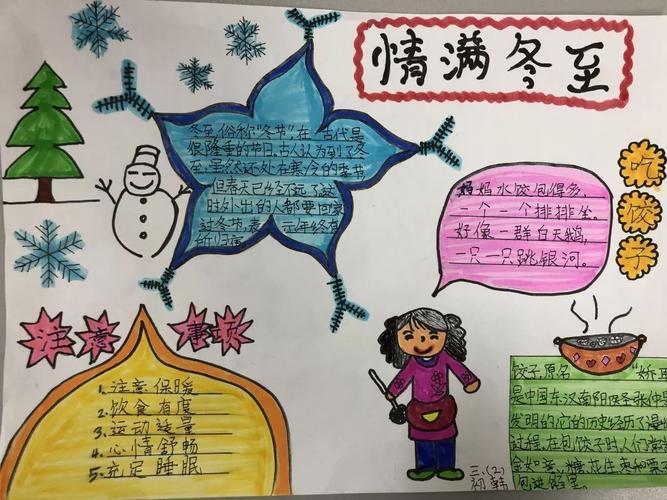 情满冬至
冬至,俗称"冬节"在 古代是
很隆重的节日,古人认为到了冬
至,虽然还处在寒冷的季节
但春天已经不远了,这
时外出的人都要回家
过冬节,表示年终有
所归宿。
吃饺子
妈妈水饺包得多,
一个一个排排坐。
好像一群白天鹅,
一只一只跳银河。
注意事项
1.注意保暖
2.饮食有度
3.运动适量
4.心情舒畅
5.充足睡眠
饺子,原名 "娇耳
是中国东汉南阳医圣张仲景
发明的,它的历史经历了漫
过程,在包饺子时,人们常
至如意、糖、花生、枣和栗
包进馅里。
三、(2)